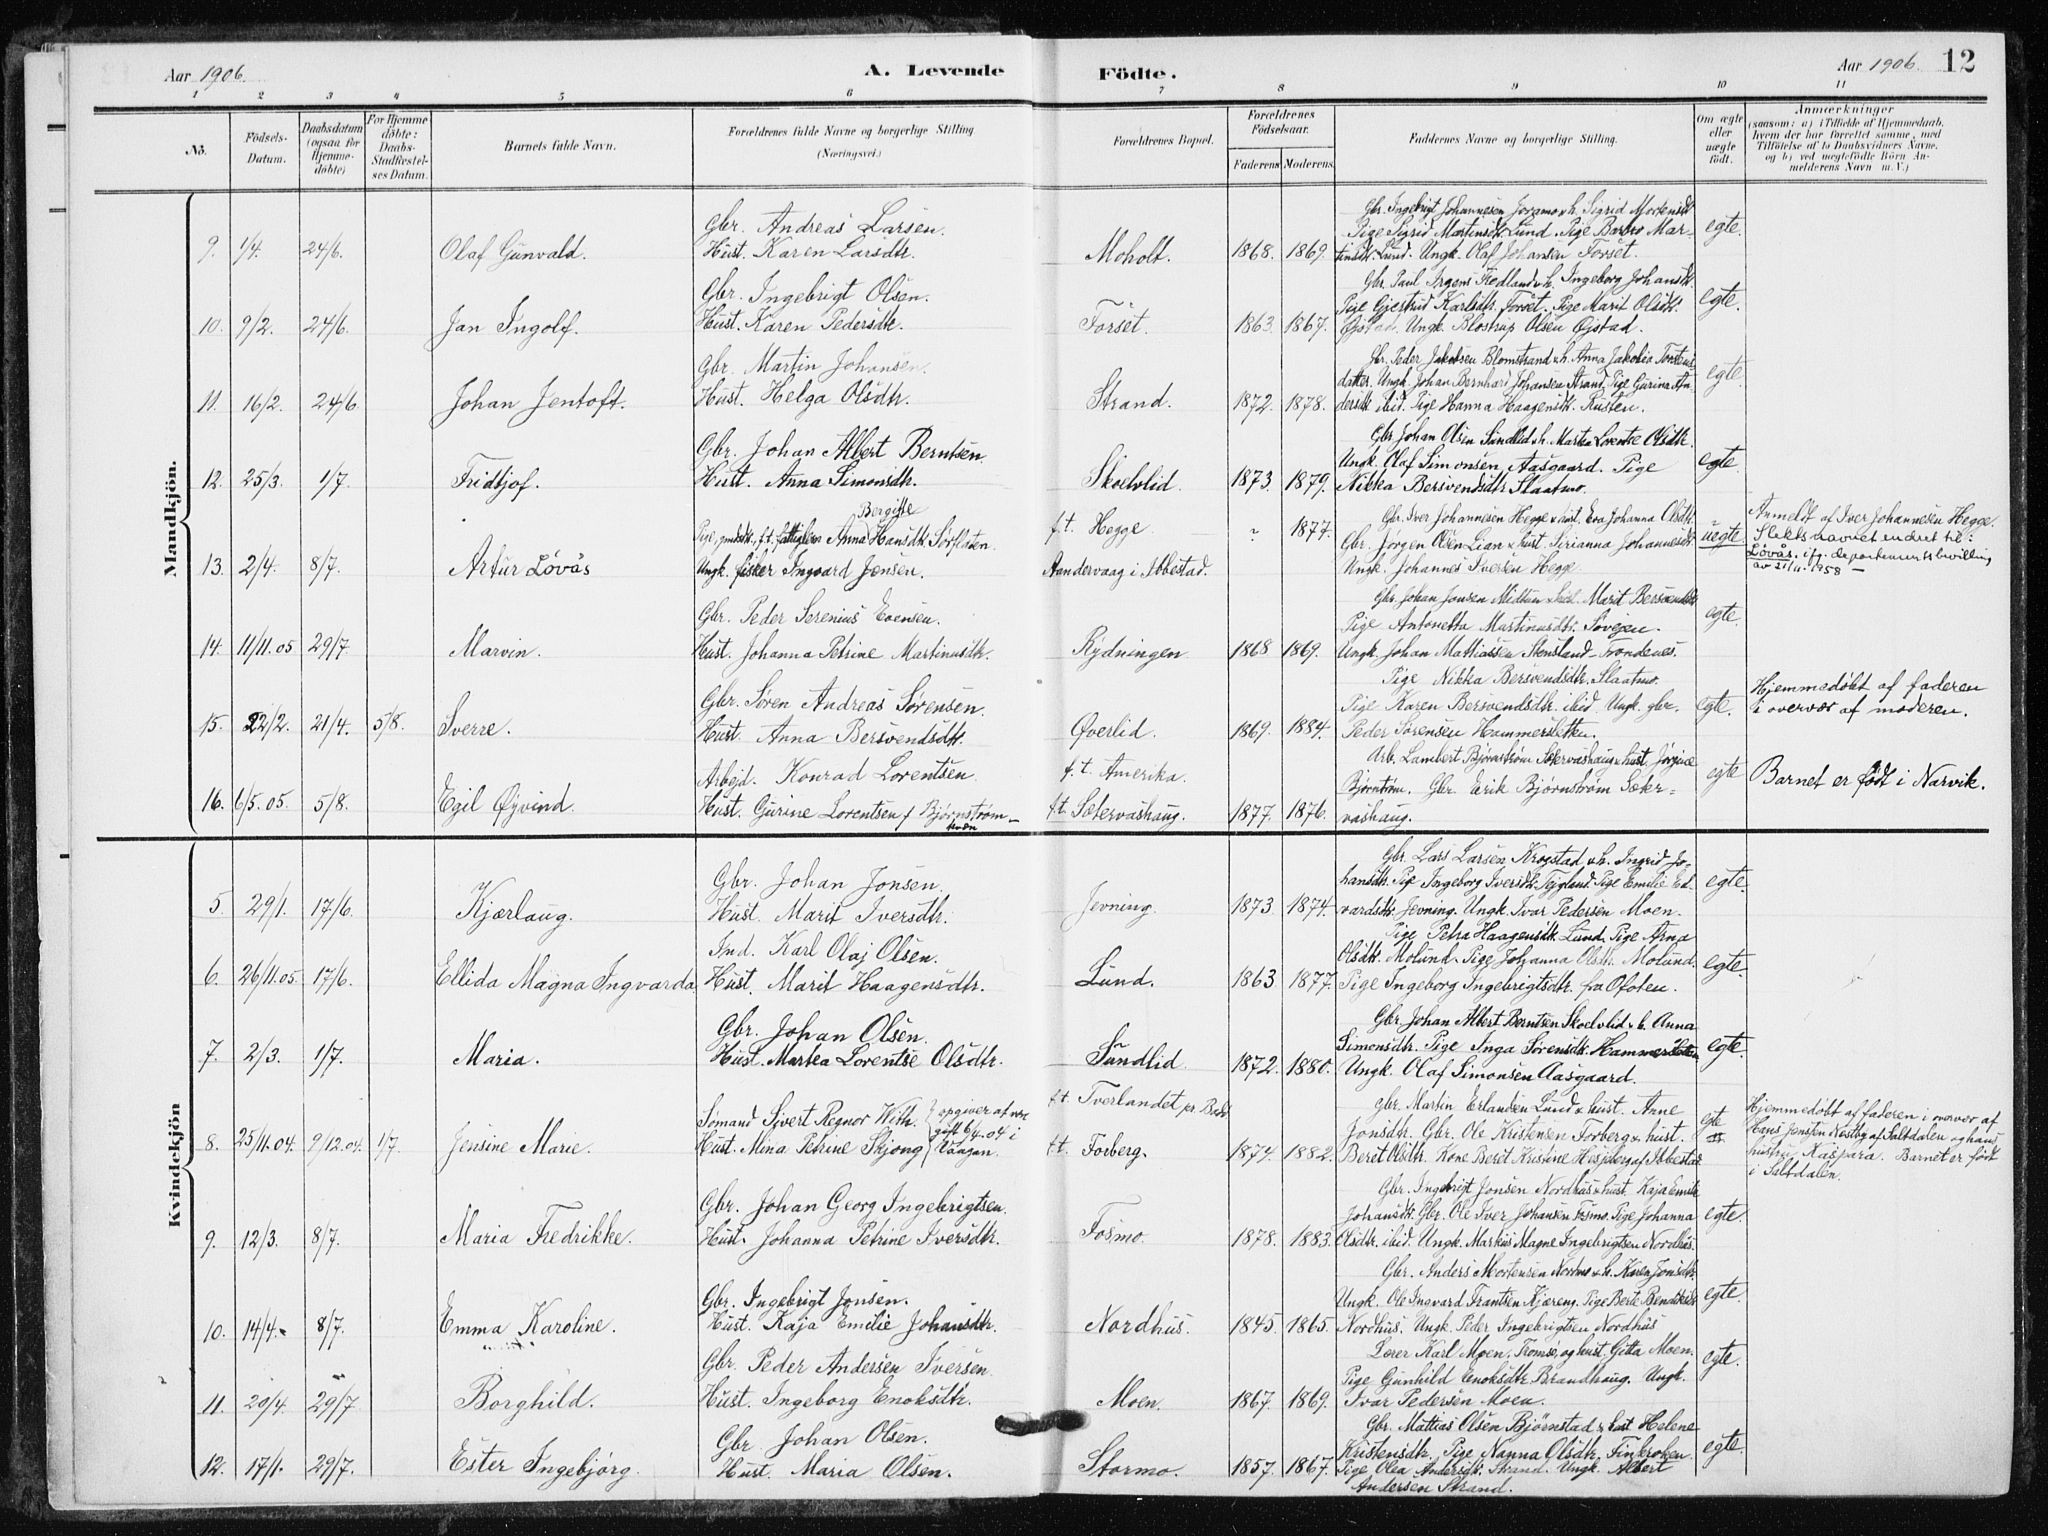 Aar 1906.
A. Levende
Födte.
Aar 1906.
12
1 2 3 4 5 6 7 8 9 10 11
No.
Födsels-Datum.
Daabsdatum (ogsaa for Hjemmedöbte)
For Hjemmedöbte: Daabs-Stadfestelses Datum.
Barnets fulde Navn.
Forældrenes fulde Navne og borgerlige Stilling (Næringsvei.)
Forældrenes Bopæl.
Forældrenes Födselsaar.
Faderens. Moderens.
Faddernes Navne og borgerlige Stilling.
Om ægte eller uægte födt.
Anmærkninger
(saasom: a) i Tilfælde af Hjemmedaab,
hvem der har forrettet samme, med
Tilföielse af to Daabsvidners Navne,
og b) ved uegtefödte Börn Anmelderens Navn m. V.)
Mandkjön.
Gbr. Ingebrigt Johannesen Joramo & h. Sigrid Mortensdt.
Gbr. Andreas Larsen.
Pige Sigrid Martinsdt. Lund. Pige Barbro Mar-
egte.
9. 1/4. 24/6. Olaf Gunvald. Hust. Karen Larsdtr. Moholt. 1868. 1869. tinsdt. Lund. Ungk. Olaf Johansen Forset.
Gbr. Ingebrigt Olsen.
Gbr. Paul Irgens Fredland & h. Ingeborg Johansdt.
Pige Gjertrud Karlsdtr. Forset. Pige Marit Olsdt. egte.
10. 9/2. 24/6. Jan Ingolf. Hust. Karen Pedersdtr. Forset. 1863. 1867. Øjstad. Ungk. Blostrup Olsen Øjstad.
Gbr. Martin Johansen.
Gbr. Peder Jakobsen Blomstrand & h. Anna Jakobia Torstens-
datter. Ungk. Johan Bernhard Johansen Strand. Pige Gurina An- egte.
11. 16/2. 24/6 Johan Jentoft. Hust. Helga Olsdtr. Strand. 1872. 1878. dersdt. ibid. Pige Hanna Haagensdt. Rusten.
Gbr. Johan Albert Berntsen.
Gbr. Johan Olsen Sundlid & h. Martha Lorentse Olsdtr.
Ungk. Olaf Simonsen Aasgaard. Pige egte.
12. 25/3. 1/7. Fridtjof. Hust. Anna Simonsdtr. Skoelvlid. 1873. 1879. Nikka Bersvendsdtr. Slaatmo.
Bergitte
Anna Hansdtr. Sørflaten. f.t. Hegge 1877. Gbr. Iver Johannesen Hegge & hust. Eva Johanna Olsdt.
Gbr. Jørgen Olsen Lian & hust. Sirianna Johannesdt. uegte.
13. 2/4. 8/7. Artur Lövås Ungk. fisker Ingvard Jensen. Aandervaag i Ibbestad. Ungk. Johannes Iversen Hegge.
Anmeldt af Iver Johannesen Hegge.
Slektsnavnet endret til:
Lövås. ifg. departementsbevilling
av 21/11. 1958 —
Gbr. Peder Serenius Evensen.
Gbr. Johan Jonsen Midtun & h. Marit Bersvendsdt.
Pige Antonetta Martinusdtr. Søvegen. egte.
14. 11/11.05 29/7. Marvin. Hust. Johanna Petrine Martinusdtr. Rydningen 1868 1869. Ungk. Johan Mathiassen Stensland - Trondenes.
Gbr. Søren Andreas Sørensen.
Pige Nikka Bersvendsdtr. Slaatmo.
Pige Karen Bersvendsdtr. ibid. Ungk. gbr. egte.
15. 22/2. 21/4. 5/8. Sverre. Hust. Anna Bersvendsdtr. Øverlid. 1869. 1884. Peder Sørensen Hammersletten.
Hjemmedöbt af faderen
i overvær af moderen.
Arbejd. Konrad Lorentsen f.t. Amerika. Arb. Lambert Bjørnstrøm Sætervashaug & hust. Jørgine
Bjørnstrøm. Gbr. Erik Bjørnstrøm Sæter- egte
16. 6/5.05. 5/8. Egil Øyvind. Hust. Gurine Lorentsen f. Bjørnstrøm — kvæn f.t. Sætervashaug. 1877. 1876. vashaug.
Barnet er födt i Narvik.
Kvindekjön
Gbr. Johan Jonsen.
Gbr. Lars Larsen Krogstad & h. Ingrid Jo-
hansdtr. Pige Ingeborg Iversdt. Fejgland. Pige Emilie Ed- egte.
5. 29/1. 17/6. Kjærlaug. Hust. Marit Iversdtr. Jevning. 1873. 1874. vardsdt. Jevning. Ungk. Ivar Pedersen Moen.
Ind. Karl Olaj Olsen.
Pige Petra Haagensdt. Lund. Pige Arna
Olsdtr. Molund. Pige Johanna Olsdtr. Molund. egte.
6. 26/11.05. 17/6. Ellida Magna Ingvarda Hust. Marit Haagensdtr. Lund. 1863. 1877. Pige Ingeborg Ingebrigtsdtr. fra Ofoten.
Gbr. Johan Olsen.
Gbr. Johan Albert Berntsen Skoelvlid & h. Anna
Simonsdtr. Pige Inga Sørensdt. Hammersletten. egte.
7. 2/3. 1/7. Maria. Hust. Martha Lorentse Olsdtr. Sundlid. 1872. 1880. Ungk. Olaf Simonsen Aasgaard.
Sømand Sivert Regnor With. opgiver at være f.t. Tverlandet pr. Bodö Gbr. Martin Erlandsen Lund & hust. Anne
gift 6/4.04 i Jonsdtr. Gbr. Ole Kristensen Forberg & hust. egte
8. 25/11.04. 9/12.04. 1/7. Jensine Marie. Hust. Mina Petrine Skjong Vaagan. f.t. Forberg. 1874. 1882. Beret Olsdtr. Kone Beret Kristine Hesjeberg af Ibbestad
Hjemmedöbt af faderen i overvær af
Hans Jensen Nestby af Saltdalen og hans
hustru Kaspara. Barnet er födt
i Saltdalen.
Gbr. Johan Georg Ingebrigtsen.
Gbr. Ingebrigt Jonsen Nordhus & hust. Kaja Emilie
Johansdt. Gbr. Ole Iver Johansen Fosmo. Pige Johanna egte.
9. 12/3. 8/7. Maria Fredrikke. Hust. Johanna Petrine Iversdtr. Fosmo 1878. 1883. Olsdtr. ibid. Ungk. Markus Magne Ingebrigtsen Nordhus.
Gbr. Ingebrigt Jonsen.
Gbr. Anders Mortensen Nordmo & h. Karen Jonsdtr.
Ungk. Ole Ingvard Frantsen Kjæreng. Pige Berte Bendiksdt. egte.
10. 14/4. 8/7. Emma Karoline. Hust. Kaja Emilie Johansdtr. Nordhus. 1845. 1865. Nordhus. Ungk. Peder Ingebrigtsen Nordhus
Gbr. Peder Andersen Iversen.
Lærer Karl Moen, Tromsø, og hust. Gitta Moen.
Pige Gunhild Enoksdtr. Brandhaug. Ungk. egte.
11. 20/4. 29/7 Borghild. Hust. Ingeborg Enoksdtr. Moen. 1867. 1869. Ivar Pedersen Moen.
Gbr. Johan Olsen.
Gbr. Mattias Olsen Bjørnstad & hust. Helene
Kristensdtr. Pige Nanna Olsdtr. Finkroken. egte.
12. 17/1. 29/7. Ester Ingebjörg. Hust. Maria Olsen. Stormo. 1857. 1867. Pige Olea Andersdt. Strand. Ungk. Albert
Andersen Strand.